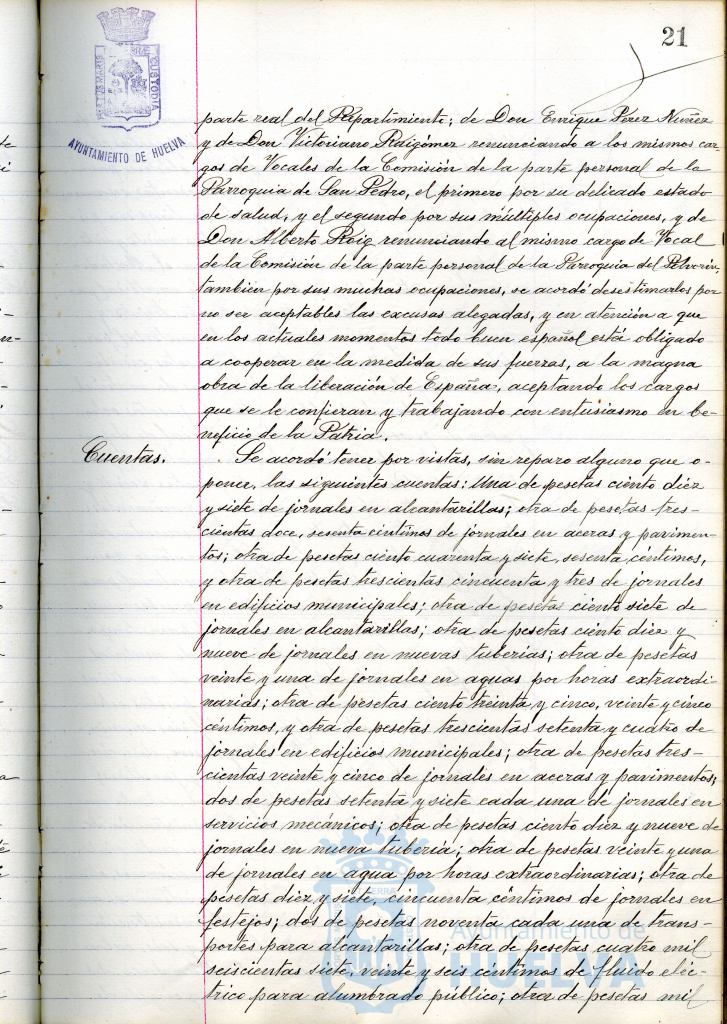 21
PORTUS MARIS ET TERRAE CUSTODIA
AYUNTAMIENTO DE HUELVA
parte real del Repartimiento; de Don Enrique Pérez Nuñez
y de Don Victoriano Raigómez renunciando a los mismos car
gos de Vocales de la Comisión de la parte personal de la
Parroquia de San Pedro, el primero por su delicado estado
de salud, y el segundo por sus múltiples ocupaciones, y de
Don Alberto Roig renunciando al mismo cargo de Vocal
de la Comisión de la parte personal de la Parroquia del Polvorín,
también por sus muchas ocupaciones, se acordó desestimarlos por
no ser aceptables las excusas alegadas, y en atención a que
en los actuales momentos todo buen español está obligado
a cooperar en la medida de sus fuerzas, a la magna
obra de la liberación de España, aceptando los cargos
que se le confieran y trabajando con entusiasmo en be-
neficio de la Patria.
Cuentas.
Se acordó tener por vistas, sin reparo alguno que o-
poner, las siguientes cuentas: Una de pesetas ciento diez
y siete de jornales en alcantarillas; otra de pesetas tres-
cientas doce, sesenta céntimos de jornales en aceras y pavimen-
tos; otra de pesetas ciento cuarenta y siete, sesenta céntimos,
y otra de pesetas trescientas cincuenta y tres de jornales
en edificios municipales; otra de pesetas ciento siete de
jornales en alcantarillas; otra de pesetas ciento diez y
nueve de jornales en nuevas tuberías; otra de pesetas
veinte y una de jornales en aguas por horas extraordi-
narias; otra de pesetas ciento treinta y cinco, veinte y cinco
céntimos, y otra de pesetas trescientas setenta y cuatro de
jornales en edificios municipales; otra de pesetas tres-
cientas veinte y cinco de jornales en aceras y pavimentos;
dos de pesetas setenta y siete cada una de jornales en
servicios mecánicos; otra de pesetas ciento diez y nueve de
jornales en nueva tubería; otra de pesetas veinte y una
de jornales en agua por horas extraordinarias; otra de
pesetas diez y siete, cincuenta céntimos de jornales en
festejos; dos de pesetas noventa cada una de trans-
portes para alcantarillas; otra de pesetas cuatro mil
seiscientas siete, veinte y seis céntimos de fluido eléc-
trico para alumbrado público; otra de pesetas mil
Ayuntamiento de
HUELVA